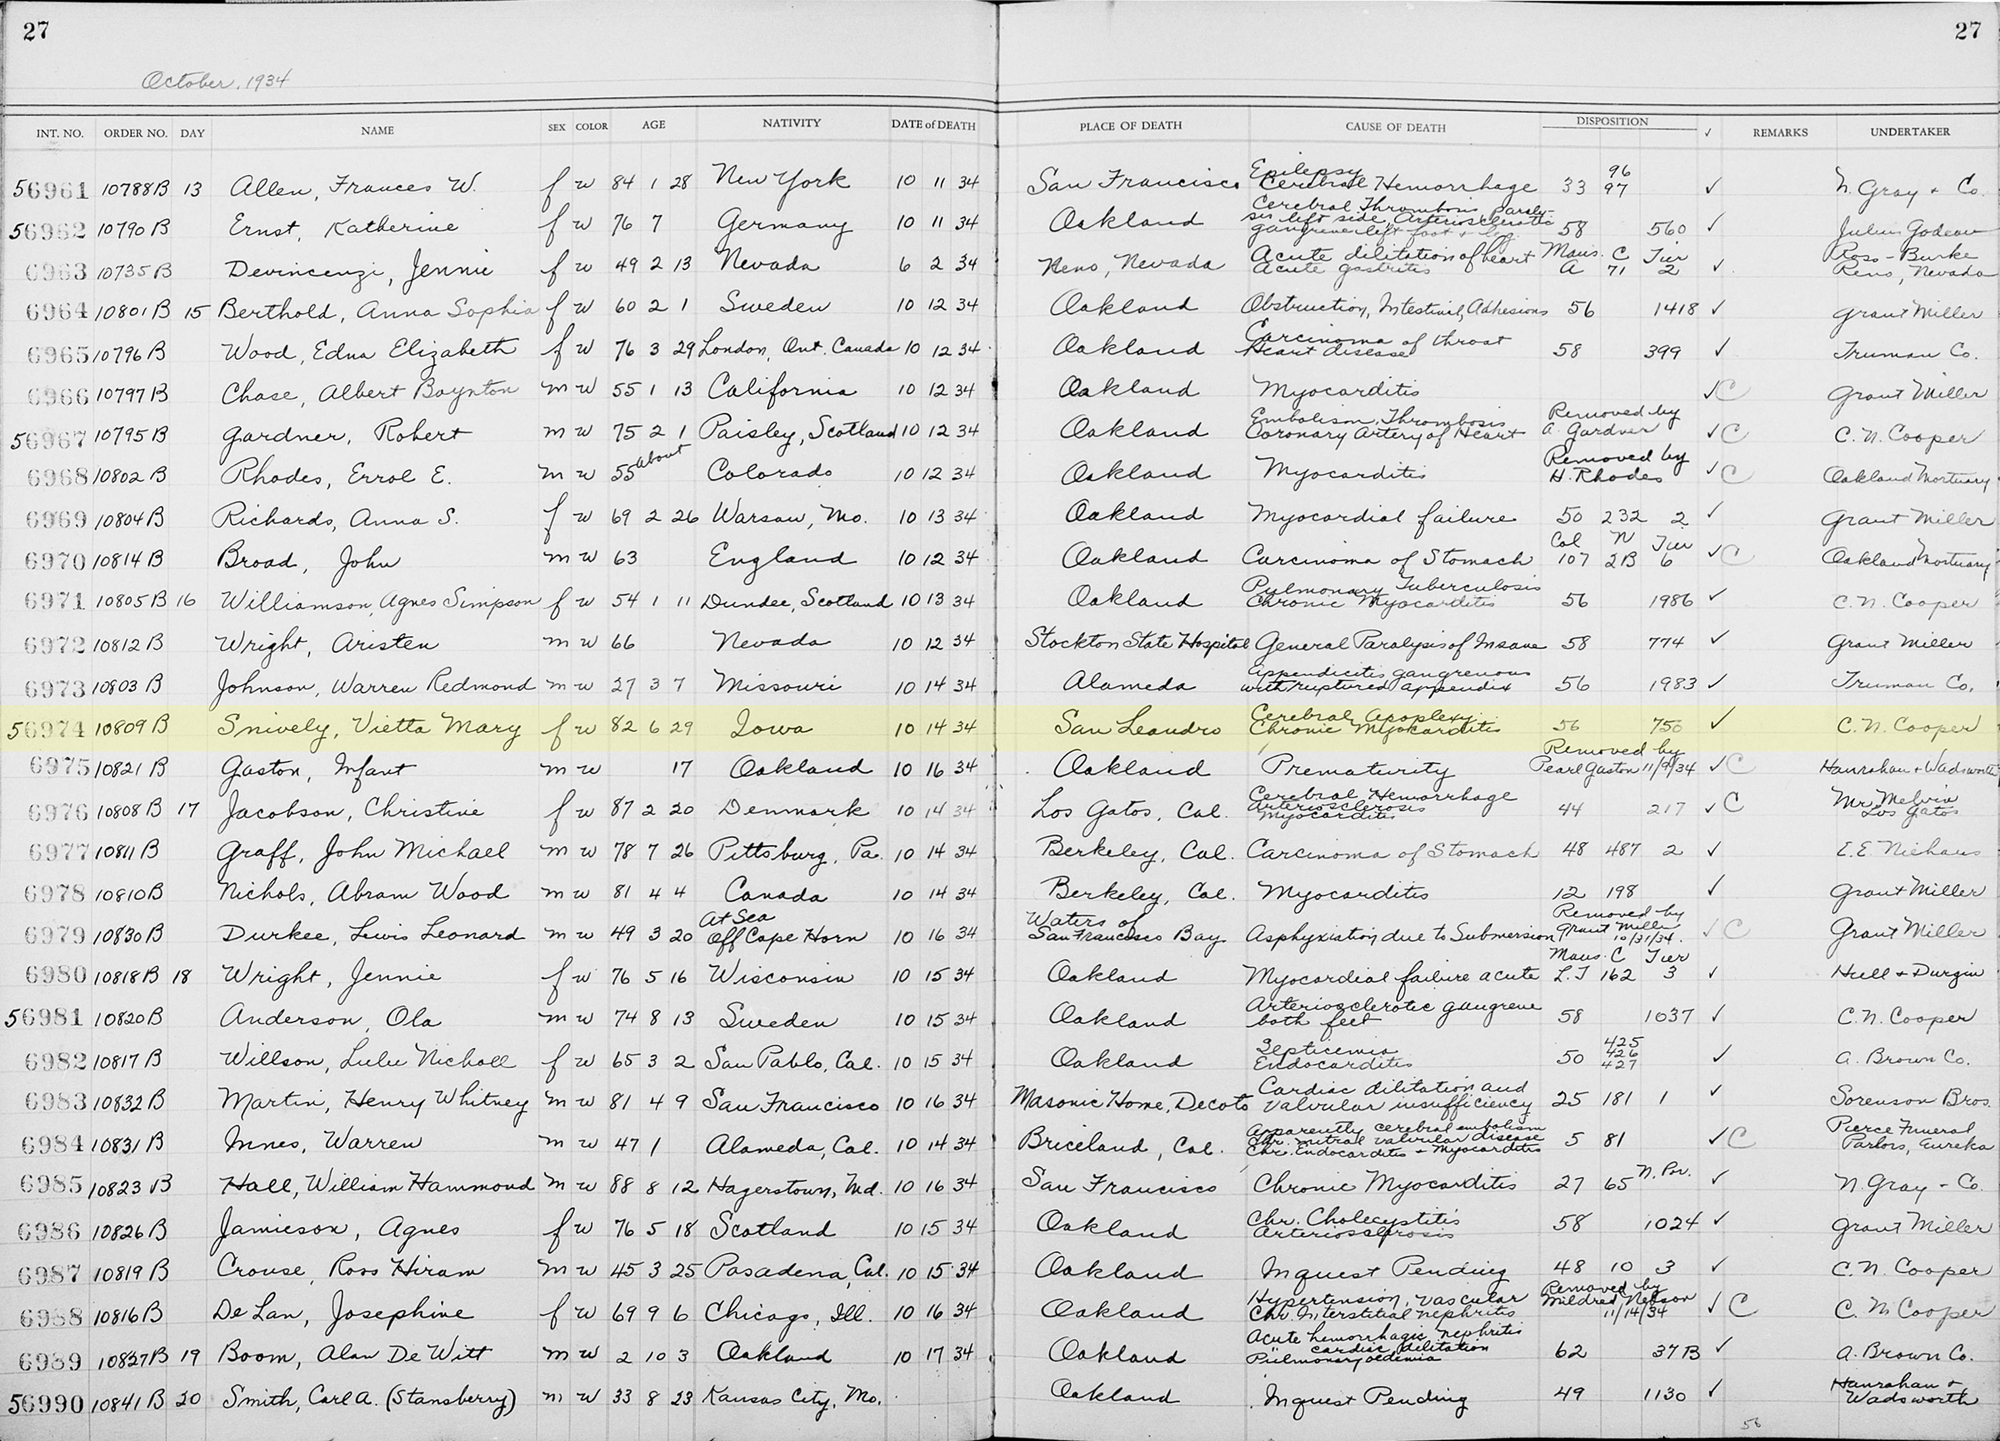 27
27
October, 1934
INT. NO. ORDER NO. DAY NAME SEX COLOR AGE NATIVITY DATE of DEATH PLACE OF DEATH CAUSE OF DEATH DISPOSITION ✓ REMARKS UNDERTAKER
56961 10788B 13 Allen, Frances W. f w 84 1 28 New York 10 11 34 San Francisco Epilepsy Cerebral Hemorrhage 33 96 97 ✓ N. Gray + Co.
56962 10790B Ernst, Katherine f w 76 7 Germany 10 11 34 Oakland Cerebral Thrombosis, Paraly-sis left side, Arteriosclerotic gangrene left foot + leg 58 560 ✓ Julius Godeau
6963 10735B Devincenzi, Jennie f w 49 2 13 Nevada 6 2 34 Reno, Nevada Acute dilitation of heart Acute gastritis Maus. C Tier A 71 2 ✓ Ross-Burke Reno, Nevada
6964 10801B 15 Berthold, Anna Sophia f w 60 2 1 Sweden 10 12 34 Oakland Obstruction, Intestinal, Adhesions 56 1418 ✓ Grant Miller
6965 10796B Wood, Edna Elizabeth f w 76 3 29 London, Ont. Canada 10 12 34 Oakland Carcinoma of throat Heart disease 58 399 ✓ Truman Co.
6966 10797B Chase, Albert Boynton m w 55 1 13 California 10 12 34 Oakland Myocarditis ✓ C Grant Miller
56967 10795B Gardner, Robert m w 75 2 1 Paisley, Scotland 10 12 34 Oakland Embolism, Thrombosis Coronary Artery of Heart Removed by A. Gardner ✓ C C. N. Cooper
6968 10802B Rhodes, Errol E. m w 55 about Colorado 10 12 34 Oakland Myocarditis Removed by H. Rhodes ✓ C Oakland Mortuary
6969 10804B Richards, Anna S. f w 69 2 26 Warsaw, Mo. 10 13 34 Oakland Myocardial failure 50 232 2 ✓ Grant Miller
6970 10814B Broad, John m w 63 England 10 12 34 Oakland Carcinoma of Stomach Col N Tier 107 2B 6 ✓ C Oakland Mortuary
6971 10805B 16 Williamson, Agnes Simpson f w 54 1 11 Dundee, Scotland 10 13 34 Oakland Pulmonary Tuberculosis Chronic Myocarditis 56 1986 ✓ C. N. Cooper
6972 10812B Wright, Aristen m w 66 Nevada 10 12 34 Stockton State Hospital General Paralysis of Insane 58 774 ✓ Grant Miller
6973 10803B Johnson, Warren Redmond m w 27 3 7 Missouri 10 14 34 Alameda Appendicitis gangrenous with ruptured appendix 56 1983 ✓ Truman Co.
56974 10809B Snively, Vietta Mary f w 82 6 29 Iowa 10 14 34 San Leandro Cerebral Apoplexy Chronic Myocarditis 56 750 ✓ C. N. Cooper
6975 10821B Gaston, Infant m w 17 Oakland 10 16 34 Oakland Prematurity Removed by Pearl Gaston 11/9/34 ✓ C Hanrahan + Wadsworth
6976 10808B 17 Jacobson, Christine f w 87 2 20 Denmark 10 14 34 Los Gatos, Cal. Cerebral Hemorrhage Arteriosclerosis Myocarditis 44 217 ✓ C Mr. Melvin Los Gatos
6977 10811B Graff, John Michael m w 78 7 26 Pittsburg, Pa. 10 14 34 Berkeley, Cal. Carcinoma of Stomach 48 487 2 ✓ E.E. Niehaus
6978 10810B Nichols, Abram Wood m w 81 4 4 Canada 10 14 34 Berkeley, Cal. Myocarditis 12 198 ✓ Grant Miller
6979 10830B Durkee, Lewis Leonard m w 49 3 20 At Sea Off Cape Horn 10 16 34 Waters of San Francisco Bay Asphyxiation due to Submersion Removed by Grant Miller 10/31/34. ✓ C Grant Miller
6980 10818B 18 Wright, Jennie f w 76 5 16 Wisconsin 10 15 34 Oakland Myocardial failure acute Maus. C Tier L.T 162 3 ✓ Hull + Durgin
56981 10820B Anderson, Ola m w 74 8 13 Sweden 10 15 34 Oakland Arteriosclerotic gangrene both feet 58 1037 ✓ C.N. Cooper
6982 10817B Willson, Lulu Nicholl f w 65 3 2 San Pablo, Cal. 10 15 34 Oakland Septicemia Endocarditis 50 425 426 427 ✓ A. Brown Co.
6983 10832B Martin, Henry Whitney m w 81 4 9 San Francisco 10 16 34 Masonic Home, Decoto Cardiac dilitation and valvular insufficiency 25 181 1 ✓ Sorenson Bros.
6984 10831B Innes, Warren m w 47 1 Alameda, Cal. 10 14 34 Briceland, Cal. Apparently cerebral embolism Chr. mitral valvular disease Chr. Endocarditis + Myocarditis 5 81 ✓ C Pierce Funeral Parlors, Eureka
6985 10823B Hall, William Hammond m w 88 8 12 Hagerstown, Md. 10 16 34 San Francisco Chronic Myocarditis 27 65 N. Por. ✓ N. Gray - Co.
6986 10826B Jamieson, Agnes f w 76 5 18 Scotland 10 15 34 Oakland Chr. Cholecystitis Arteriosclerosis 58 1024 ✓ Grant Miller
6987 10819B Crouse, Ross Hiram m w 45 3 25 Pasadena, Cal. 10 15 34 Oakland Inquest Pending 48 10 3 ✓ C.N. Cooper
6988 10816B De Lan, Josephine f w 69 9 6 Chicago, Ill. 10 16 34 Oakland Hypertension, vascular Chr. Interstitial nephritis Removed by Mildred Nelson 11/14/34 ✓ C C. N. Cooper
6989 10827B 19 Boom, Alan De Witt m w 2 10 3 Oakland 10 17 34 Oakland Acute hemorrhagic nephritis " cardiac dilitation Pulmonary oedemia 62 37B ✓ A. Brown Co.
56990 10841B 20 Smith, Carl A. (Stansberry) m w 33 8 23 Kansas City, Mo. Oakland Inquest Pending 49 1130 ✓ Hanrahan + Wadsworth
56